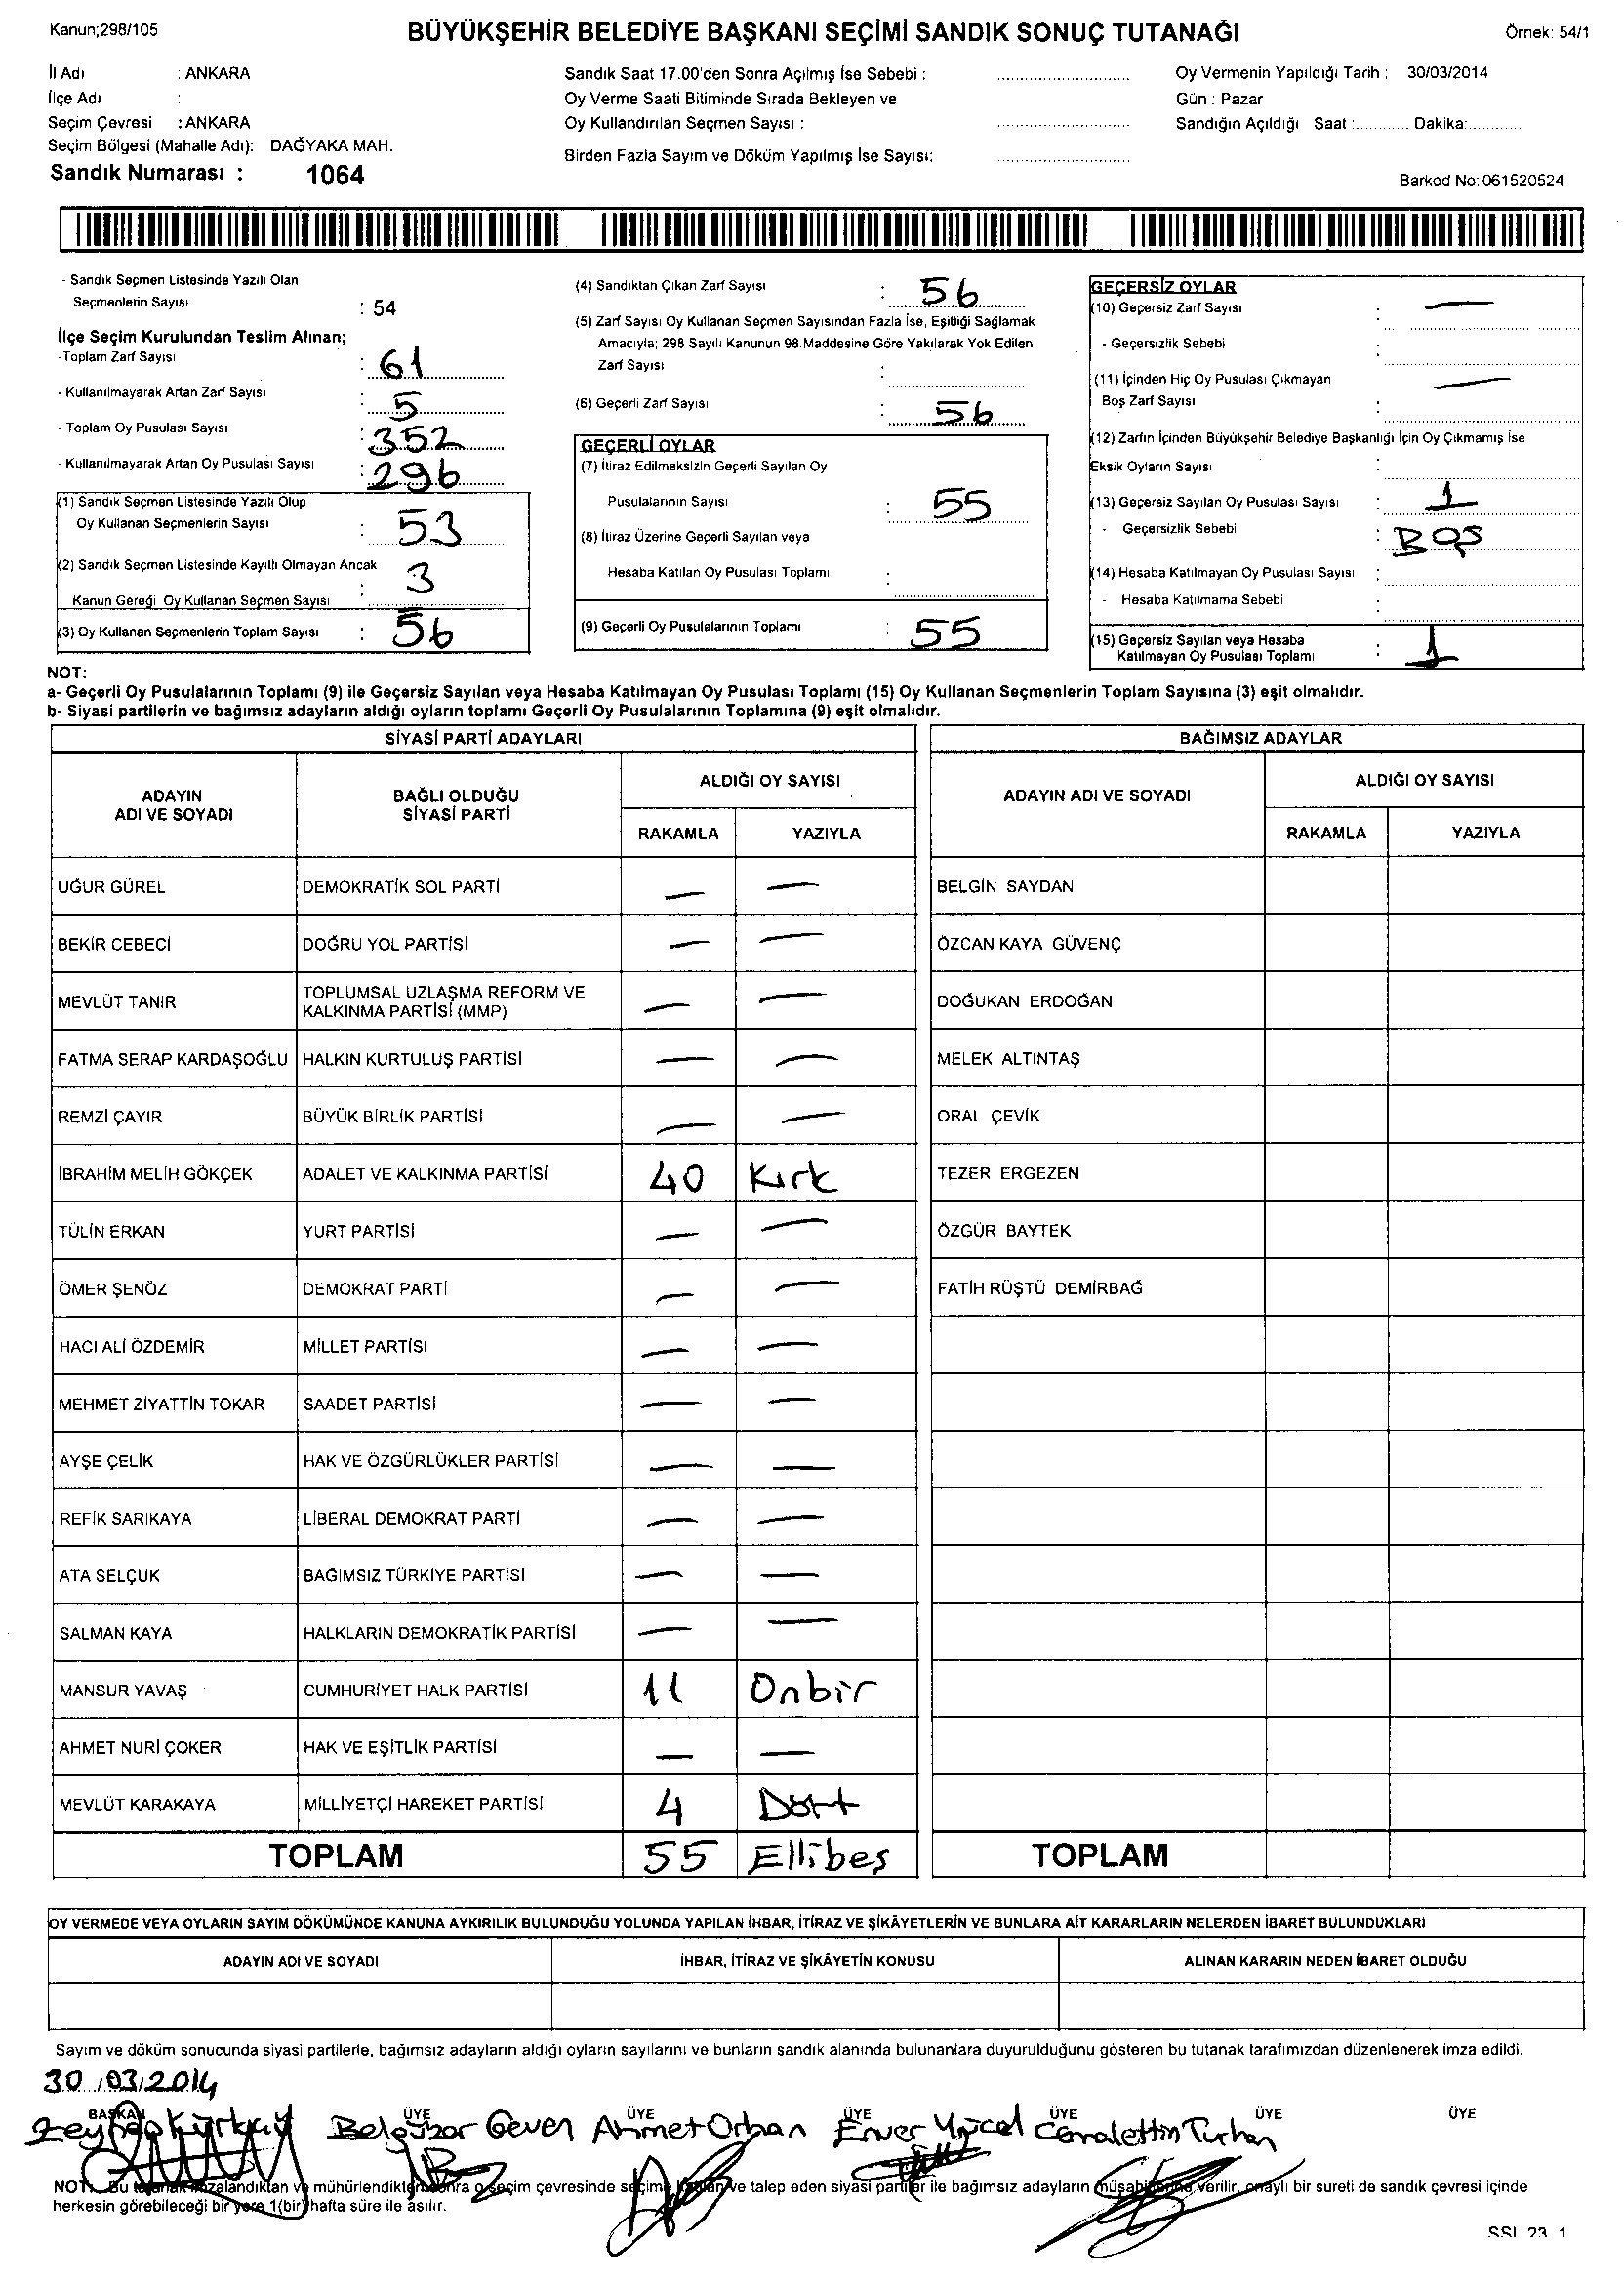 Kanun;298/105
BÜYÜKŞEHİR BELEDİYE BAŞKANI SEÇİMİ SANDIK SONUÇ TUTANAĞI
Örnek: 54/1
İl Adı : ANKARA
İlçe Adı :
Seçim Çevresi : ANKARA
Seçim Bölgesi (Mahalle Adı): DAĞYAKA MAH.
Sandık Numarası : 1064
Sandık Saat 17.00'den Sonra Açılmış İse Sebebi :
Oy Verme Saati Bitiminde Sırada Bekleyen ve
Oy Kullandırılan Seçmen Sayısı :
Birden Fazla Sayım ve Döküm Yapılmış İse Sayısı:
Oy Vermenin Yapıldığı Tarih : 30/03/2014
Gün : Pazar
Sandığın Açıldığı Saat :............ Dakika:............
Barkod No:061520524
- Sandık Seçmen Listesinde Yazılı Olan
Seçmenlerin Sayısı : 54
İlçe Seçim Kurulundan Teslim Alınan;
-Toplam Zarf Sayısı : 61
- Kullanılmayarak Artan Zarf Sayısı : 5
- Toplam Oy Pusulası Sayısı : 352
- Kullanılmayarak Artan Oy Pusulası Sayısı : 296
(1) Sandık Seçmen Listesinde Yazılı Olup
Oy Kullanan Seçmenlerin Sayısı : 53
(2) Sandık Seçmen Listesinde Kayıtlı Olmayan Ancak
Kanun Gereği Oy Kullanan Seçmen Sayısı : 3
(3) Oy Kullanan Seçmenlerin Toplam Sayısı : 56
(4) Sandıktan Çıkan Zarf Sayısı : 56
(5) Zarf Sayısı Oy Kullanan Seçmen Sayısından Fazla İse, Eşitliği Sağlamak
Amacıyla; 298 Sayılı Kanunun 98.Maddesine Göre Yakılarak Yok Edilen
Zarf Sayısı :
(6) Geçerli Zarf Sayısı : 56
GEÇERLİ OYLAR
(7) İtiraz Edilmeksizin Geçerli Sayılan Oy
Pusulalarının Sayısı : 55
(8) İtiraz Üzerine Geçerli Sayılan veya
Hesaba Katılan Oy Pusulası Toplamı :
(9) Geçerli Oy Pusulalarının Toplamı : 55
GEÇERSİZ OYLAR
(10) Geçersiz Zarf Sayısı : —
- Geçersizlik Sebebi :
(11) İçinden Hiç Oy Pusulası Çıkmayan —
Boş Zarf Sayısı :
(12) Zarfın İçinden Büyükşehir Belediye Başkanlığı İçin Oy Çıkmamış İse
Eksik Oyların Sayısı :
(13) Geçersiz Sayılan Oy Pusulası Sayısı : 1
- Geçersizlik Sebebi : BOŞ
(14) Hesaba Katılmayan Oy Pusulası Sayısı :
- Hesaba Katılmama Sebebi :
(15) Geçersiz Sayılan veya Hesaba
Katılmayan Oy Pusulası Toplamı : 1
NOT:
a- Geçerli Oy Pusulalarının Toplamı (9) ile Geçersiz Sayılan veya Hesaba Katılmayan Oy Pusulası Toplamı (15) Oy Kullanan Seçmenlerin Toplam Sayısına (3) eşit olmalıdır.
b- Siyasi partilerin ve bağımsız adayların aldığı oyların toplamı Geçerli Oy Pusulalarının Toplamına (9) eşit olmalıdır.
SİYASİ PARTİ ADAYLARI
ADAYIN ADI VE SOYADI BAĞLI OLDUĞU SİYASİ PARTİ ALDIĞI OY SAYISI
RAKAMLA YAZIYLA
UĞUR GÜREL DEMOKRATİK SOL PARTİ — —
BEKİR CEBECİ DOĞRU YOL PARTİSİ — —
MEVLÜT TANIR TOPLUMSAL UZLAŞMA REFORM VE KALKINMA PARTİSİ (MMP) — —
FATMA SERAP KARDAŞOĞLU HALKIN KURTULUŞ PARTİSİ — —
REMZİ ÇAYIR BÜYÜK BİRLİK PARTİSİ — —
İBRAHİM MELİH GÖKÇEK ADALET VE KALKINMA PARTİSİ 40 Kırk
TÜLİN ERKAN YURT PARTİSİ — —
ÖMER ŞENÖZ DEMOKRAT PARTİ — —
HACI ALİ ÖZDEMİR MİLLET PARTİSİ — —
MEHMET ZİYATTİN TOKAR SAADET PARTİSİ — —
AYŞE ÇELİK HAK VE ÖZGÜRLÜKLER PARTİSİ — —
REFİK SARIKAYA LİBERAL DEMOKRAT PARTİ — —
ATA SELÇUK BAĞIMSIZ TÜRKİYE PARTİSİ — —
SALMAN KAYA HALKLARIN DEMOKRATİK PARTİSİ — —
MANSUR YAVAŞ CUMHURİYET HALK PARTİSİ 11 Onbir
AHMET NURİ ÇOKER HAK VE EŞİTLİK PARTİSİ — —
MEVLÜT KARAKAYA MİLLİYETÇİ HAREKET PARTİSİ 4 Dört
TOPLAM 55 Ellibeş
BAĞIMSIZ ADAYLAR
ADAYIN ADI VE SOYADI ALDIĞI OY SAYISI
RAKAMLA YAZIYLA
BELGİN SAYDAN
ÖZCAN KAYA GÜVENÇ
DOĞUKAN ERDOĞAN
MELEK ALTINTAŞ
ORAL ÇEVİK
TEZER ERGEZEN
ÖZGÜR BAYTEK
FATİH RÜŞTÜ DEMİRBAĞ
TOPLAM
OY VERMEDE VEYA OYLARIN SAYIM DÖKÜMÜNDE KANUNA AYKIRILIK BULUNDUĞU YOLUNDA YAPILAN İHBAR, İTİRAZ VE ŞİKÂYETLERİN VE BUNLARA AİT KARARLARIN NELERDEN İBARET BULUNDUKLARI
ADAYIN ADI VE SOYADI İHBAR, İTİRAZ VE ŞİKÂYETİN KONUSU ALINAN KARARIN NEDEN İBARET OLDUĞU
Sayım ve döküm sonucunda siyasi partilerle, bağımsız adayların aldığı oyların sayılarını ve bunların sandık alanında bulunanlara duyurulduğunu gösteren bu tutanak tarafımızdan düzenlenerek imza edildi.
30/03/2014
BAŞKAN ÜYE ÜYE ÜYE ÜYE ÜYE ÜYE
Zeynep Belgüzar Geven Ahmet Orhan Enver Yücel Cemalettin Turhan
NOT: Bu tutanak imzalandıktan ve mühürlendikten sonra o seçim çevresinde seçime katılan ve talep eden siyasi partiler ile bağımsız adayların müşahitlerine verilir, onaylı bir sureti de sandık çevresi içinde
herkesin görebileceği bir yere 1(bir) hafta süre ile asılır.
SSI 23 1